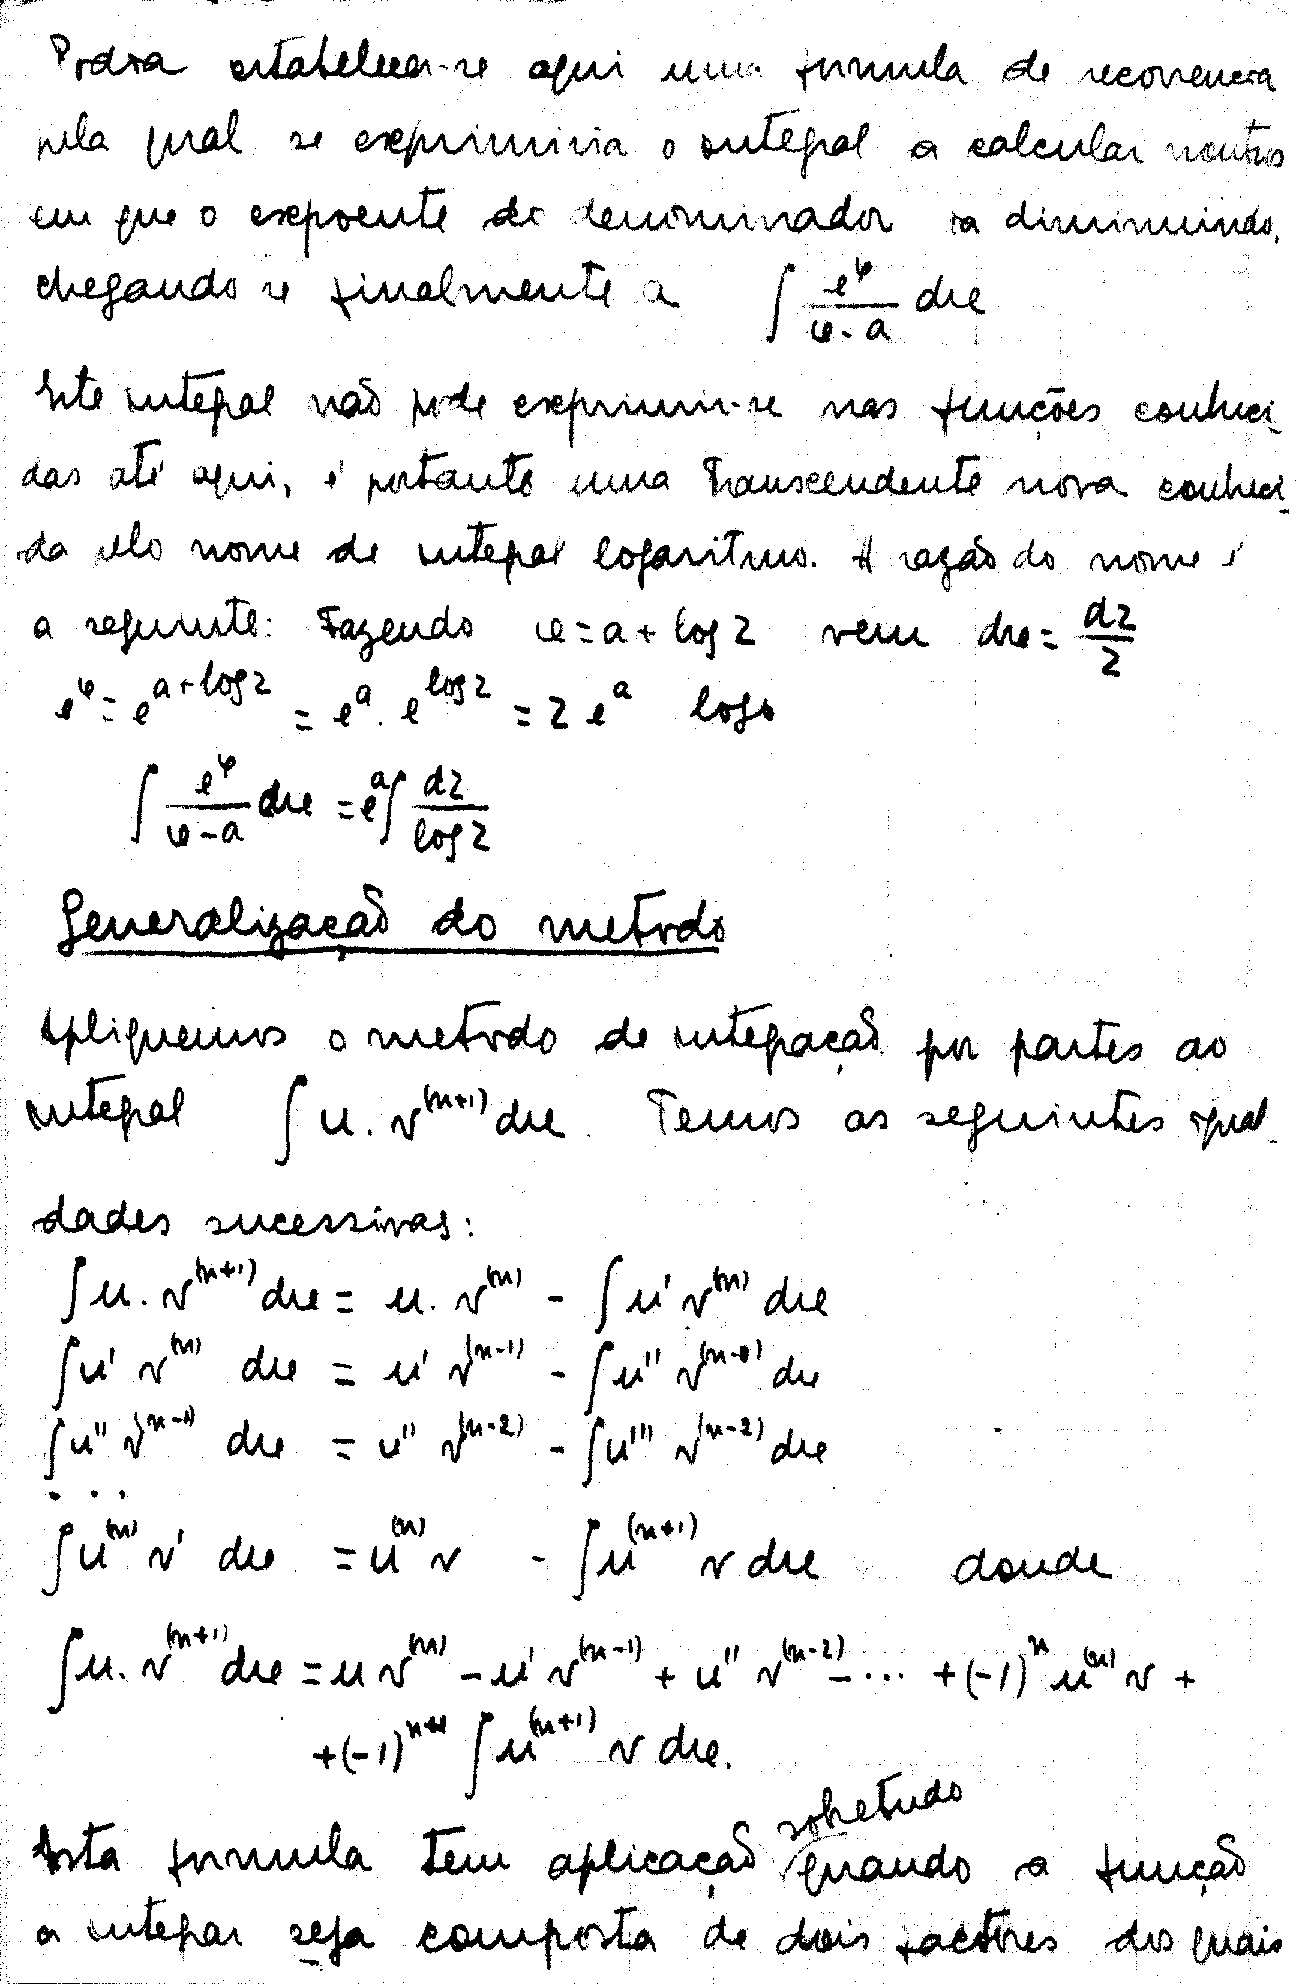 Podia estabelecer-se aqui uma formula de recorrencia
pela qual se exprimiria o integral a calcular noutros
em que o expoente do denominador ia diminuindo,
chegando se finalmente a ∫ e^x/(x-a) dx
Este integral não pode exprimir-se nas funções conheci-
das até aqui, é portanto uma Transcendente nova conheci-
da pelo nome de integral logaritmo. A razão do nome é
a seguinte: Fazendo x = a + log z vem dx = dz/z
e^x = e^(a+log z) = e^a . e^(log z) = z e^a logo
∫ e^x/(x-a) dx = e^a ∫ dz/log z
Generalização do metodo
Apliquemos o metodo de integração por partes ao
integral ∫ u. v^(n+1) dx. Temos as seguintes igual-
dades sucessivas:
∫ u. v^(n+1) dx = u. v^(n) - ∫ u' v^(n) dx
∫ u' v^(n) dx = u' v^(n-1) - ∫ u'' v^(n-1) dx
∫ u'' v^(n-1) dx = u'' v^(n-2) - ∫ u''' v^(n-2) dx
...
∫ u^(n) v' dx = u^(n) v - ∫ u^(n+1) v dx donde
∫ u. v^(n+1) dx = u v^(n) - u' v^(n-1) + u'' v^(n-2) - ... + (-1)^n u^(n) v +
+ (-1)^(n+1) ∫ u^(n+1) v dx.
Esta formula tem aplicação sobretudo quando a função
a integrar seja composta de dois factores dos quais